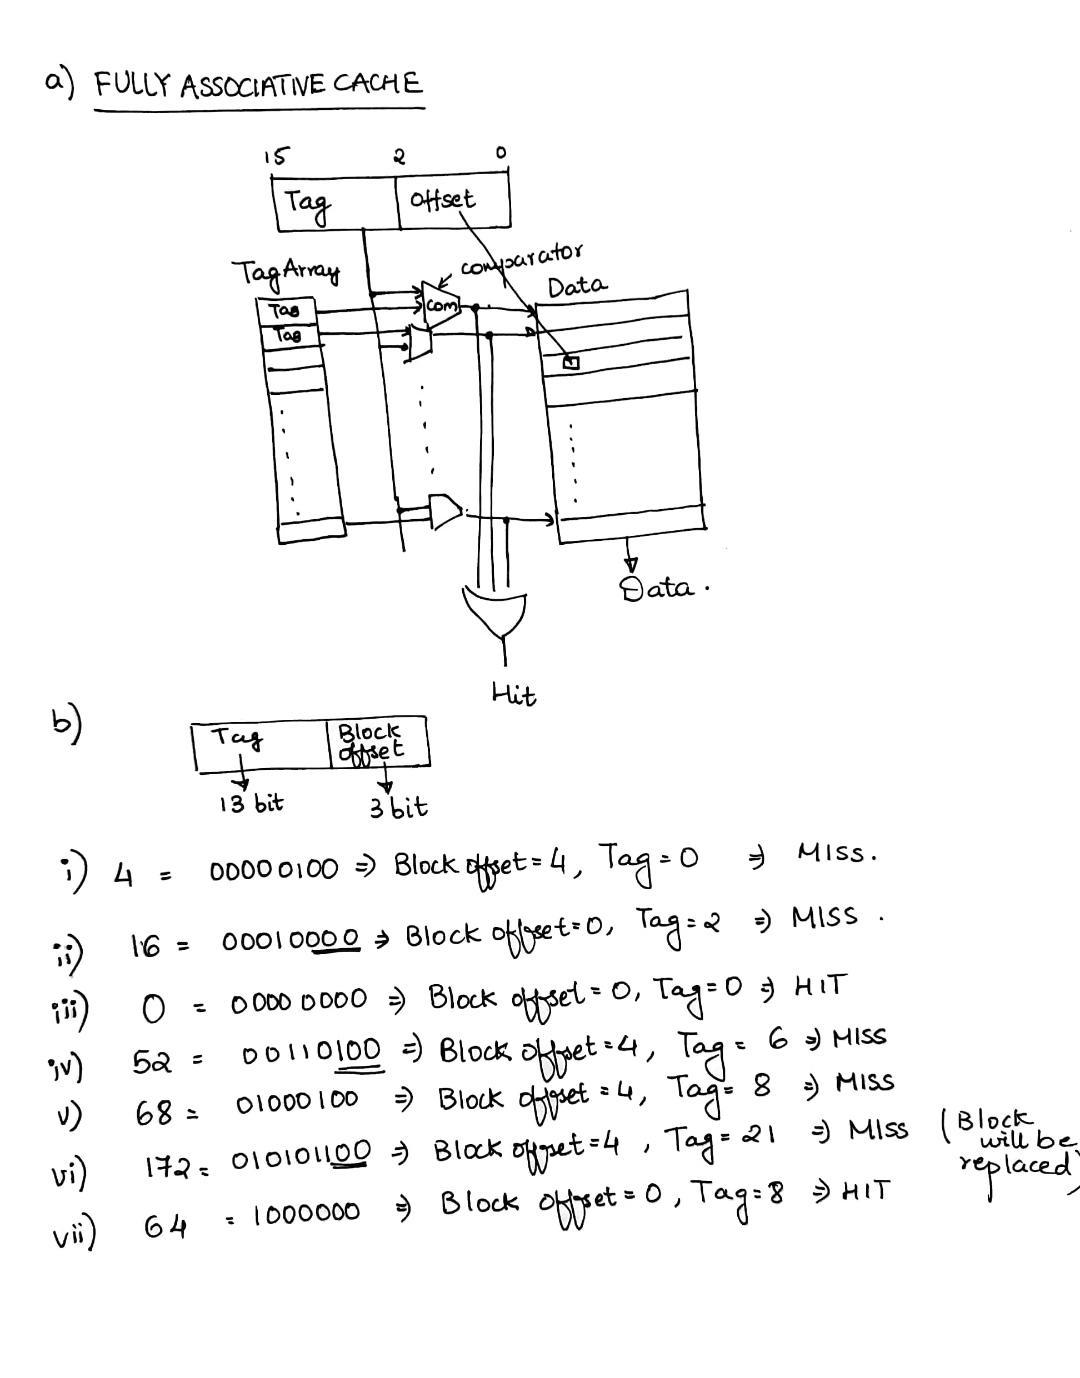 a) FULLY ASSOCIATIVE CACHE
15 2 0
Tag Offset
Tag Array comparator
Data
Tag com
Tag
Data.
Hit
b)
Tag Block offset
13 bit 3 bit
i) 4 = 00000100 ⇒ Block offset = 4, Tag = 0 ⇒ MISS.
ii) 16 = 00010000 ⇒ Block offset = 0, Tag = 2 ⇒ MISS.
iii) 0 = 0000 0000 ⇒ Block offset = 0, Tag = 0 ⇒ HIT
iv) 52 = 00110100 ⇒ Block offset = 4, Tag = 6 ⇒ MISS
v) 68 = 01000100 ⇒ Block offset = 4, Tag = 8 ⇒ MISS
vi) 172 = 010101100 ⇒ Block offset = 4, Tag = 21 ⇒ MISS (Block will be replaced)
vii) 64 = 1000000 ⇒ Block offset = 0, Tag = 8 ⇒ HIT